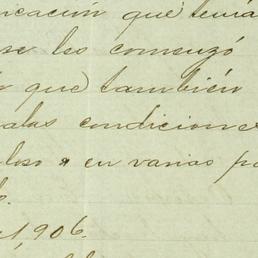 icación que tenía
se les comenzó
que también
alas condicione
loso a en varias pa
1,906.